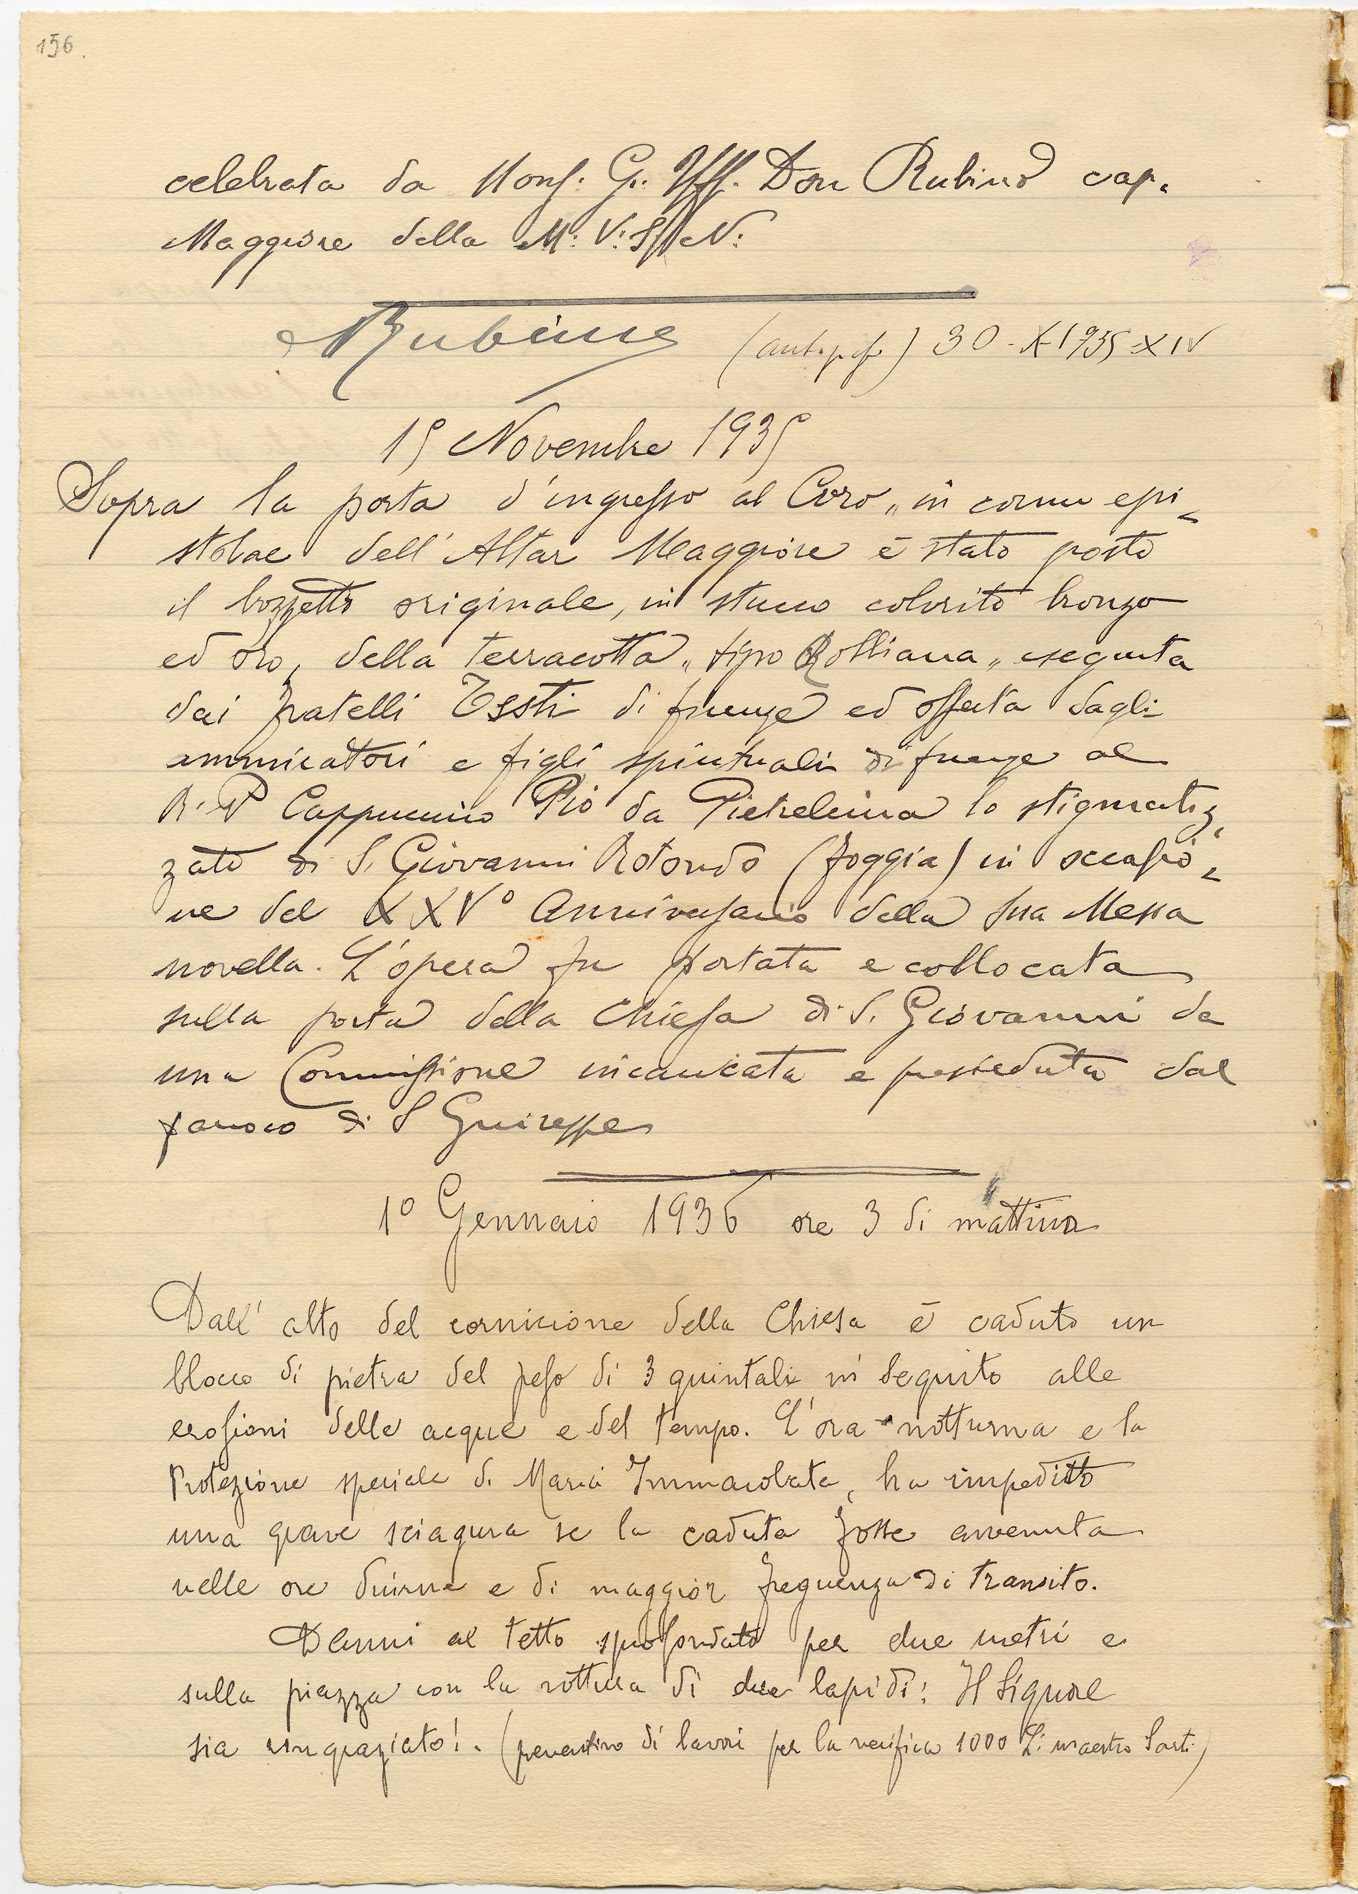 156.
celebrata da Mons. G. Uff. Don Rubino cap.
Maggiore della M. V. S. N.
Rubino (autografo) 30-X-1935-XIV
15 Novembre 1935
Sopra la porta d'ingresso al Coro „ in cornu epi-
stolae dell'Altar Maggiore è stato posto
il bozzetto originale, in stucco colorito bronzo
ed oro, della terracotta „ tipo Robbiana „ eseguita
dai fratelli Testi di firenze ed offerta dagli
ammiratori e figli spirituali di firenze al
R. P. Cappuccino Pio da Pietrelcina lo stigmatiz-
zato di S. Giovanni Rotondo (foggia) in occasio-
ne del XXV° Anniversario della sua Messa
novella. L'opera fu portata e collocata
sulla porta della Chiesa di S. Giovanni da
una Commissione incaricata e presieduta dal
parroco di S Giuseppe
1° Gennaio 1936 ore 3 di mattina
Dall'alto del cornicione della Chiesa è caduto un
blocco di pietra del peso di 3 quintali in seguito alle
erosioni delle acque e del tempo. L'ora notturna e la
Protezione speciale di Maria Immacolata, ha impedito
una grave sciagura se la caduta fosse avvenuta
nelle ore diurne e di maggior frequenza di transito.
Danni al tetto sprofondato per due metri e
sulla piazza con la rottura di due lapidi: Il Signore
sia ringraziato!. (preventivo di lavori per la verifica 1000 L. maestro Sarti)